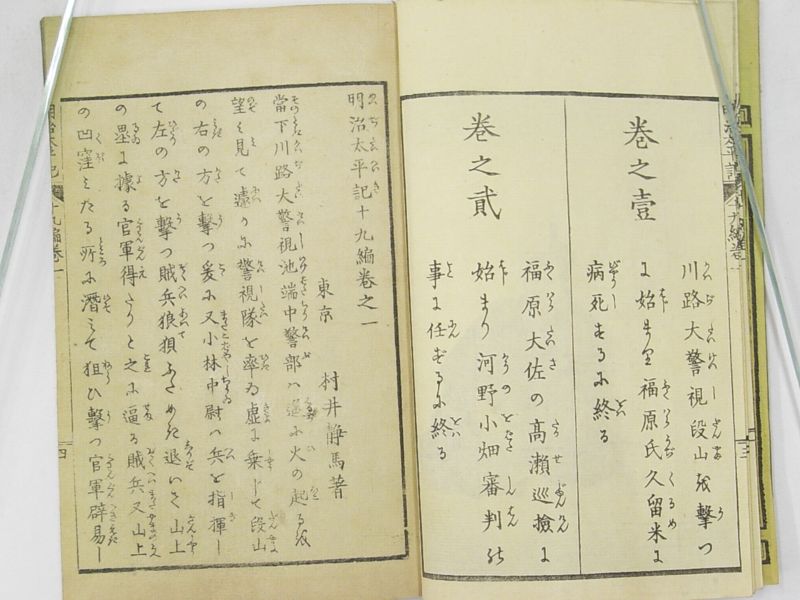 巻之壹
川路大警視段山を撃つ
に始まり福原氏久留米に
病死するに終る
巻之貳
福原大佐の高瀬巡撿に
始まり河野小畑審判の
事に任ずるに終る
明治太平記十九編巻之一
東京 村井静馬著
當下川路大警視池端中警部ハ遥に火の起るを
望み見て遽かに警視隊を率ゐ虚に乗じて段山
の右の方を撃つ爰に又小林中尉ハ兵を指揮し
て左の方を撃つ賊兵狼狽ふためき退いて山上
の塁に據る官軍得たりと之に逼る賊兵又山上
の凹窪みたる所に潜みて狙ひ撃つ官軍辟易し
明治太平記 十九編巻一
四